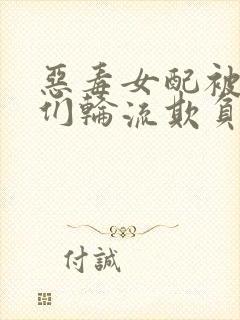 惡毒女配被
们輪流欺負
付誠